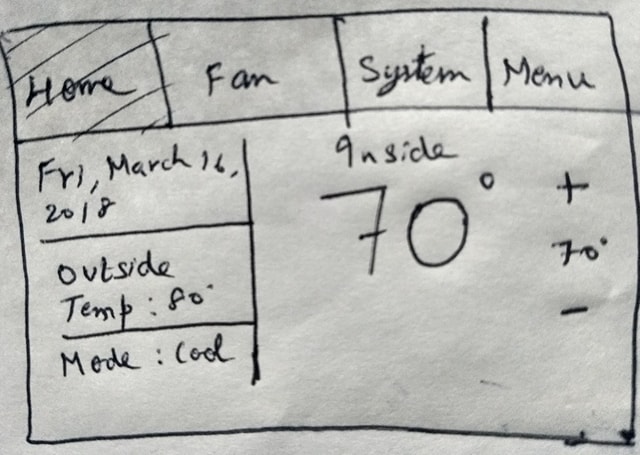 Home Fan System Menu
Fri, March 16,
2018
Outside
Temp : 80°
Mode : Cool
Inside
70°
+
70°
-